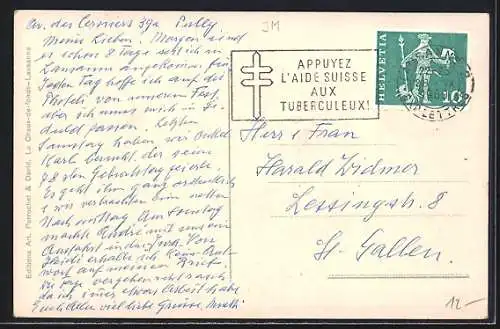 Av. des Cerisiers 39a Pully.
Meine Lieben. Morgen sind
es schon 8 Tage seit ich in
Lausanne angekommen bin
Jeden Tag hoffe ich auf das
von unserem Fest,
aber ich muss mich in Ge-
duld fassen. Letzten
Samstag haben wir Onkel
Karli besucht, der seine
78sten Geburtstag feierte.
Es geht ihm ganz ordentlich
& wir verbrachten einen netten
Nachmittag. Am Sonntag
machte André mit uns eine
Ausfahrt in den Jura. Von
Heidi erhalte ich keine Ant-
wort auf meinen Brief.
Die Tage vergehen rasch
da ich immer etwas Arbeit habe.
Euch allen viele liebe Grüsse,
Editions Art. Perrochet & David, La Chaux-de-fonds-Lausanne
JM
APPUYEZ
L'AIDE SUISSE
AUX
TUBERCULEUX!
HELVETIA
10
Herr & Frau
Harald Widmer
Lessingstr. 8
St. Gallen.
12.-